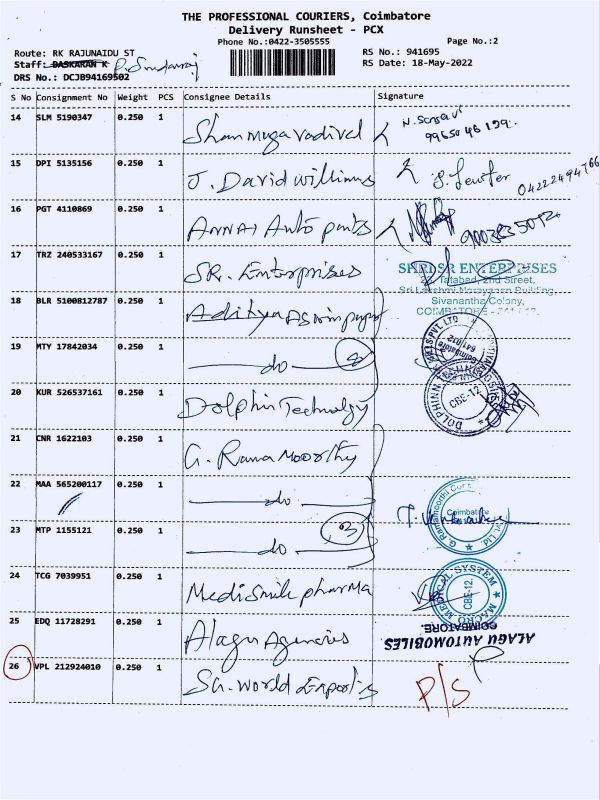 THE PROFESSIONAL COURIERS, Coimbatore
Delivery Runsheet - PCX
Phone No.:0422-3505555
Page No.:2
Route: RK RAJUNAIDU ST
RS No.: 941695
Staff: BASKARAN K
RS Date: 18-May-2022
DRS No.: DCJB94169502
S No Consignment No Weight PCS Consignee Details Signature
14 SLM 5190347 0.250 1 Shanmuga vadivel
15 DPI 5135156 0.250 1 J. David williums
16 PGT 4110869 0.250 1 ANNAI Auto parts
17 TRZ 240533167 0.250 1 SR. Enterprises
SHRI SR ENTERPRISES
Tatabad, 2nd Street,
Sri Lakshmi Narayanan Building,
Sivanantha Colony,
COIMBATORE
18 BLR 5100812787 0.250 1 Aditya
19 MTY 17842034 0.250 1 do 2
20 KUR 526537161 0.250 1 Dolphin Technology
CBE-12
21 CNR 1622103 0.250 1 G. Rama Moorthy
22 MAA 565200117 0.250 1 do
Coimbatore
23 MTP 1155121 0.250 1 do 3
24 TCG 7039951 0.250 1 Medismile pharma
MEDICAL SYSTEM
CBE-12
25 EDQ 11728291 0.250 1 Alagu Agencies
ALAGU AUTOMOBILES
COIMBATORE.
26 VPL 212924010 0.250 1 SG. World Exports P/S